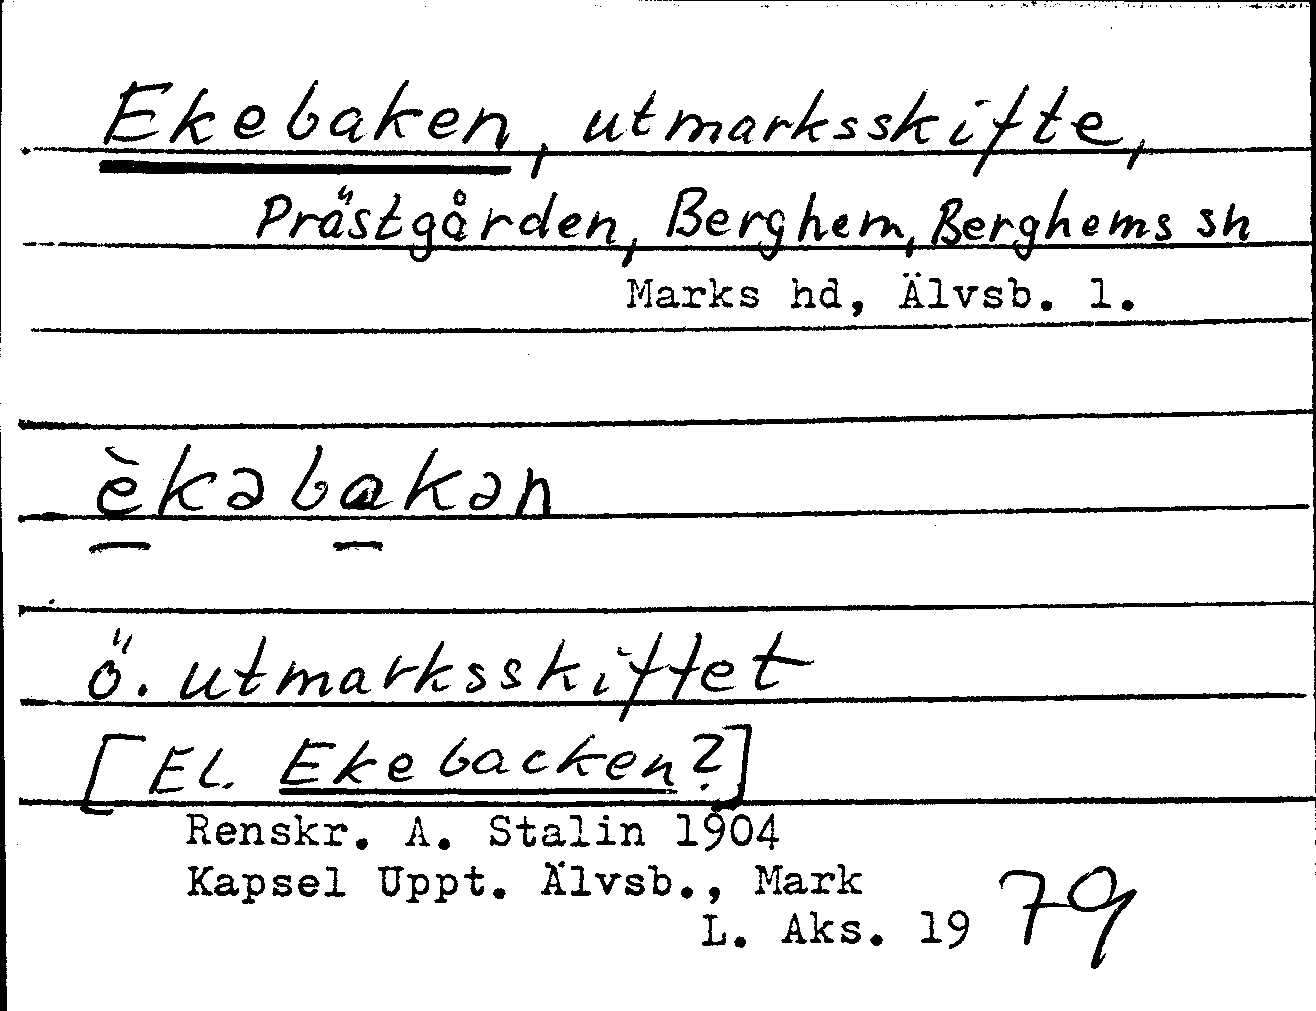 Ekebaken, utmarksskifte,
Prästgården, Berghem, Berghems sn
Marks hd, Älvsb. l.
èkəbakən
ö. utmarksskiftet
[El. Ekebacken?]
Renskr. A. Stalin 1904
Kapsel Uppt. Älvsb., Mark
L. Aks. 1979